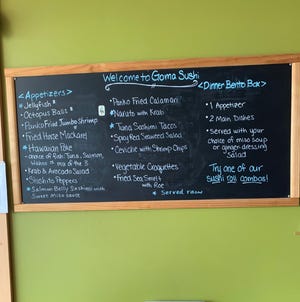 Welcome to Goma Sushi
<Appetizers>
* Jellyfish *
* Octopus Balls *
• Panko Fried Jumbo Shrimp
• Fried Horse Mackerel
* Hawaiian Poke
- choice of Raw Tuna, Salmon,
or mix of the 3
• Krab & Avocado Salad
• Shishito Peppers
* Salmon Belly Sashimi with
Sweet Miso sauce
• Panko Fried Calamari
* Naruto with Krab
* Tuna Sashimi Tacos
• Spicy Seaweed Salad
• Ceviche with Shrimp Chips
• Vegetable Croquettes
• Fried Sea Smelt
with Roe
* Served raw
<Dinner Bento Box>
• 1 Appetizer
• 2 Main Dishes
• Served with your
choice of miso soup
or ginger dressing
Salad
Try one of our
Sushi roll combos!